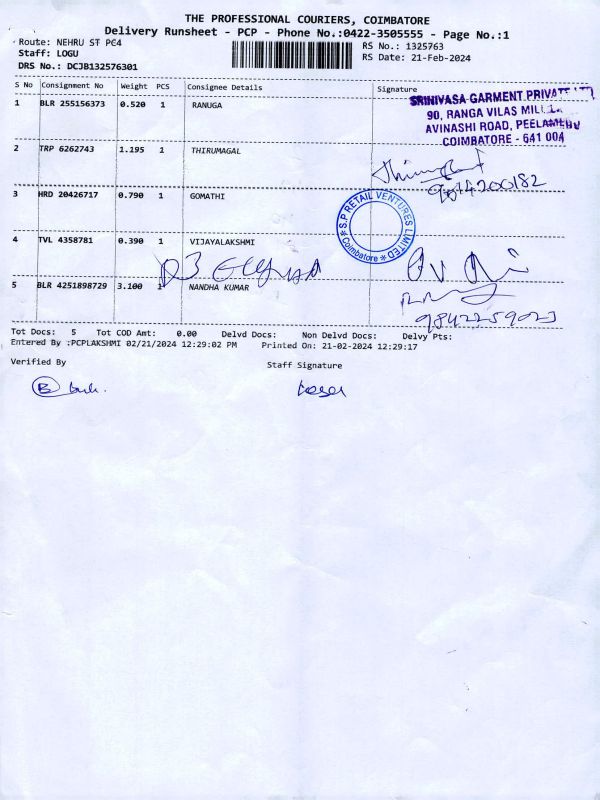 THE PROFESSIONAL COURIERS, COIMBATORE
Delivery Runsheet - PCP - Phone No.:0422-3505555 - Page No.:1
Route: NEHRU ST PC4
RS No.: 1325763
Staff: LOGU
RS Date: 21-Feb-2024
DRS No.: DCJB132576301
S No Consignment No Weight PCS Consignee Details Signature
1 BLR 255156373 0.520 1 RANUGA
SRINIVASA GARMENT PRIVATE LTD
90, RANGA VILAS MILL
AVINASHI ROAD, PEELAMEDU
COIMBATORE - 641 004
2 TRP 6262743 1.195 1 THIRUMAGAL
3 HRD 20426717 0.790 1 GOMATHI
S.P RETAIL VENTURES LIMITED
Coimbatore
4 TVL 4358781 0.390 1 VIJAYALAKSHMI
5 BLR 4251898729 3.100 1 NANDHA KUMAR
Tot Docs: 5 Tot COD Amt: 0.00 Delvd Docs: Non Delvd Docs: Delvy Pts:
Entered By :PCPLAKSHMI 02/21/2024 12:29:02 PM Printed On: 21-02-2024 12:29:17
Verified By
Staff Signature